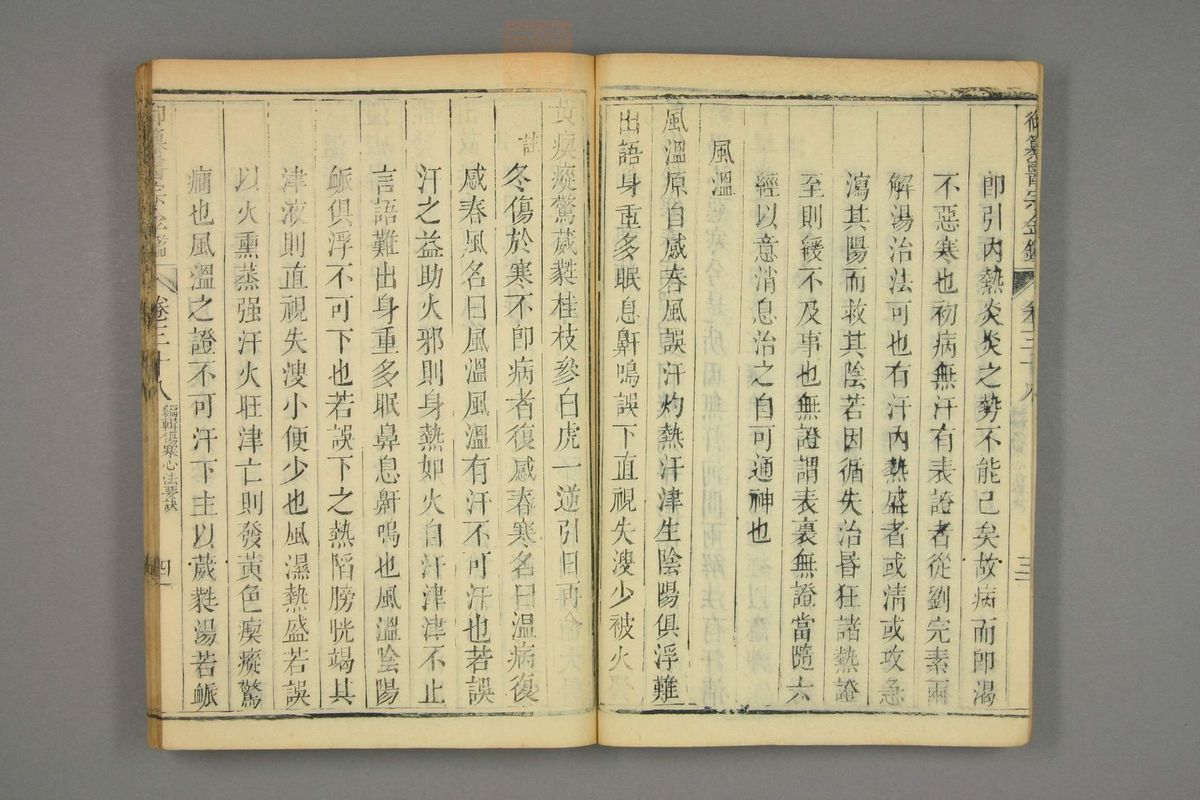 御纂醫宗金鑑 卷三十八 三
即引內熱炎炎之勢不能已矣故病而即渴
不惡寒也初病無汗有表證者從劉完素兩
解湯治法可也有汗內熱盛者或清或攻急
瀉其陽而救其陰若因循失治昏狂諸熱證
至則緩不及事也無證謂表裏無證當隨六
經以意消息治之自可通神也
風溫
風溫原自感春風誤汗灼熱汗津生陰陽俱浮難
出語身重多眠息鼾鳴誤下直視失溲少被火
黃瘈瘲驚葳蕤桂枝參白虎一逆引日再
註
冬傷於寒不即病者復感春寒名曰溫病復
感春風名曰風溫風溫有汗不可汗也若誤
汗之益助火邪則身熱如火自汗津津不止
言語難出身重多眠鼻息鼾鳴也風溫陰陽
脈俱浮不可下也若誤下之熱陷膀胱竭其
津液則直視失溲小便少也風濕熱盛若誤
以火熏蒸强汗火旺津亡則發黃色瘈瘲驚
癎也風溫之證不可汗下主以葳蕤湯若脈
御纂醫宗金鑑 卷三十八 編輯傷寒心法要訣 四